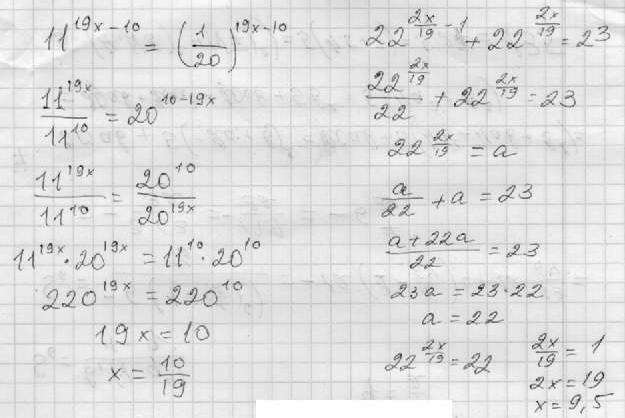 11^(19x-10) = (1/20)^(19x-10)
11^(19x)/11^(10) = 20^(10-19x)
11^(19x)/11^(10) = 20^(10)/20^(19x)
11^(19x) · 20^(19x) = 11^(10) · 20^(10)
220^(19x) = 220^(10)
19x = 10
x = 10/19
22^(2x/19 - 1) + 22^(2x/19) = 23
22^(2x/19)/22 + 22^(2x/19) = 23
22^(2x/19) = a
a/22 + a = 23
(a+22a)/22 = 23
23a = 23·22
a = 22
22^(2x/19) = 22
2x/19 = 1
2x = 19
x = 9,5